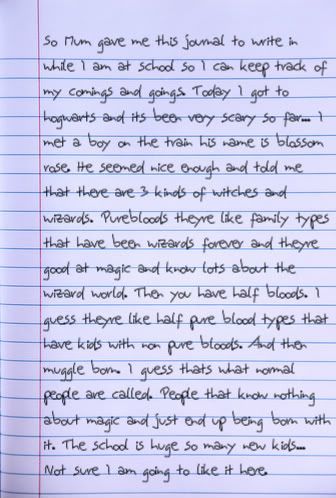 So Mum gave me this journal to write in
while I am at school so I can keep track of
my comings and goings. Today I got to
hogwarts and its been very scary so far... I
met a boy on the train his name is blossom
rose. He seemed nice enough and told me
that there are 3 kinds of witches and
wizards. Purebloods theyre like family types
that have been wizards forever and theyre
good at magic and know lots about the
wizard world. Then you have half bloods. I
guess theyre like half pure blood types that
have kids with non pure bloods. And then
muggle born. I guess thats what normal
people are called. People that know nothing
about magic and just end up being born with
it. The school is huge so many new kids...
Not sure I am going to like it here.